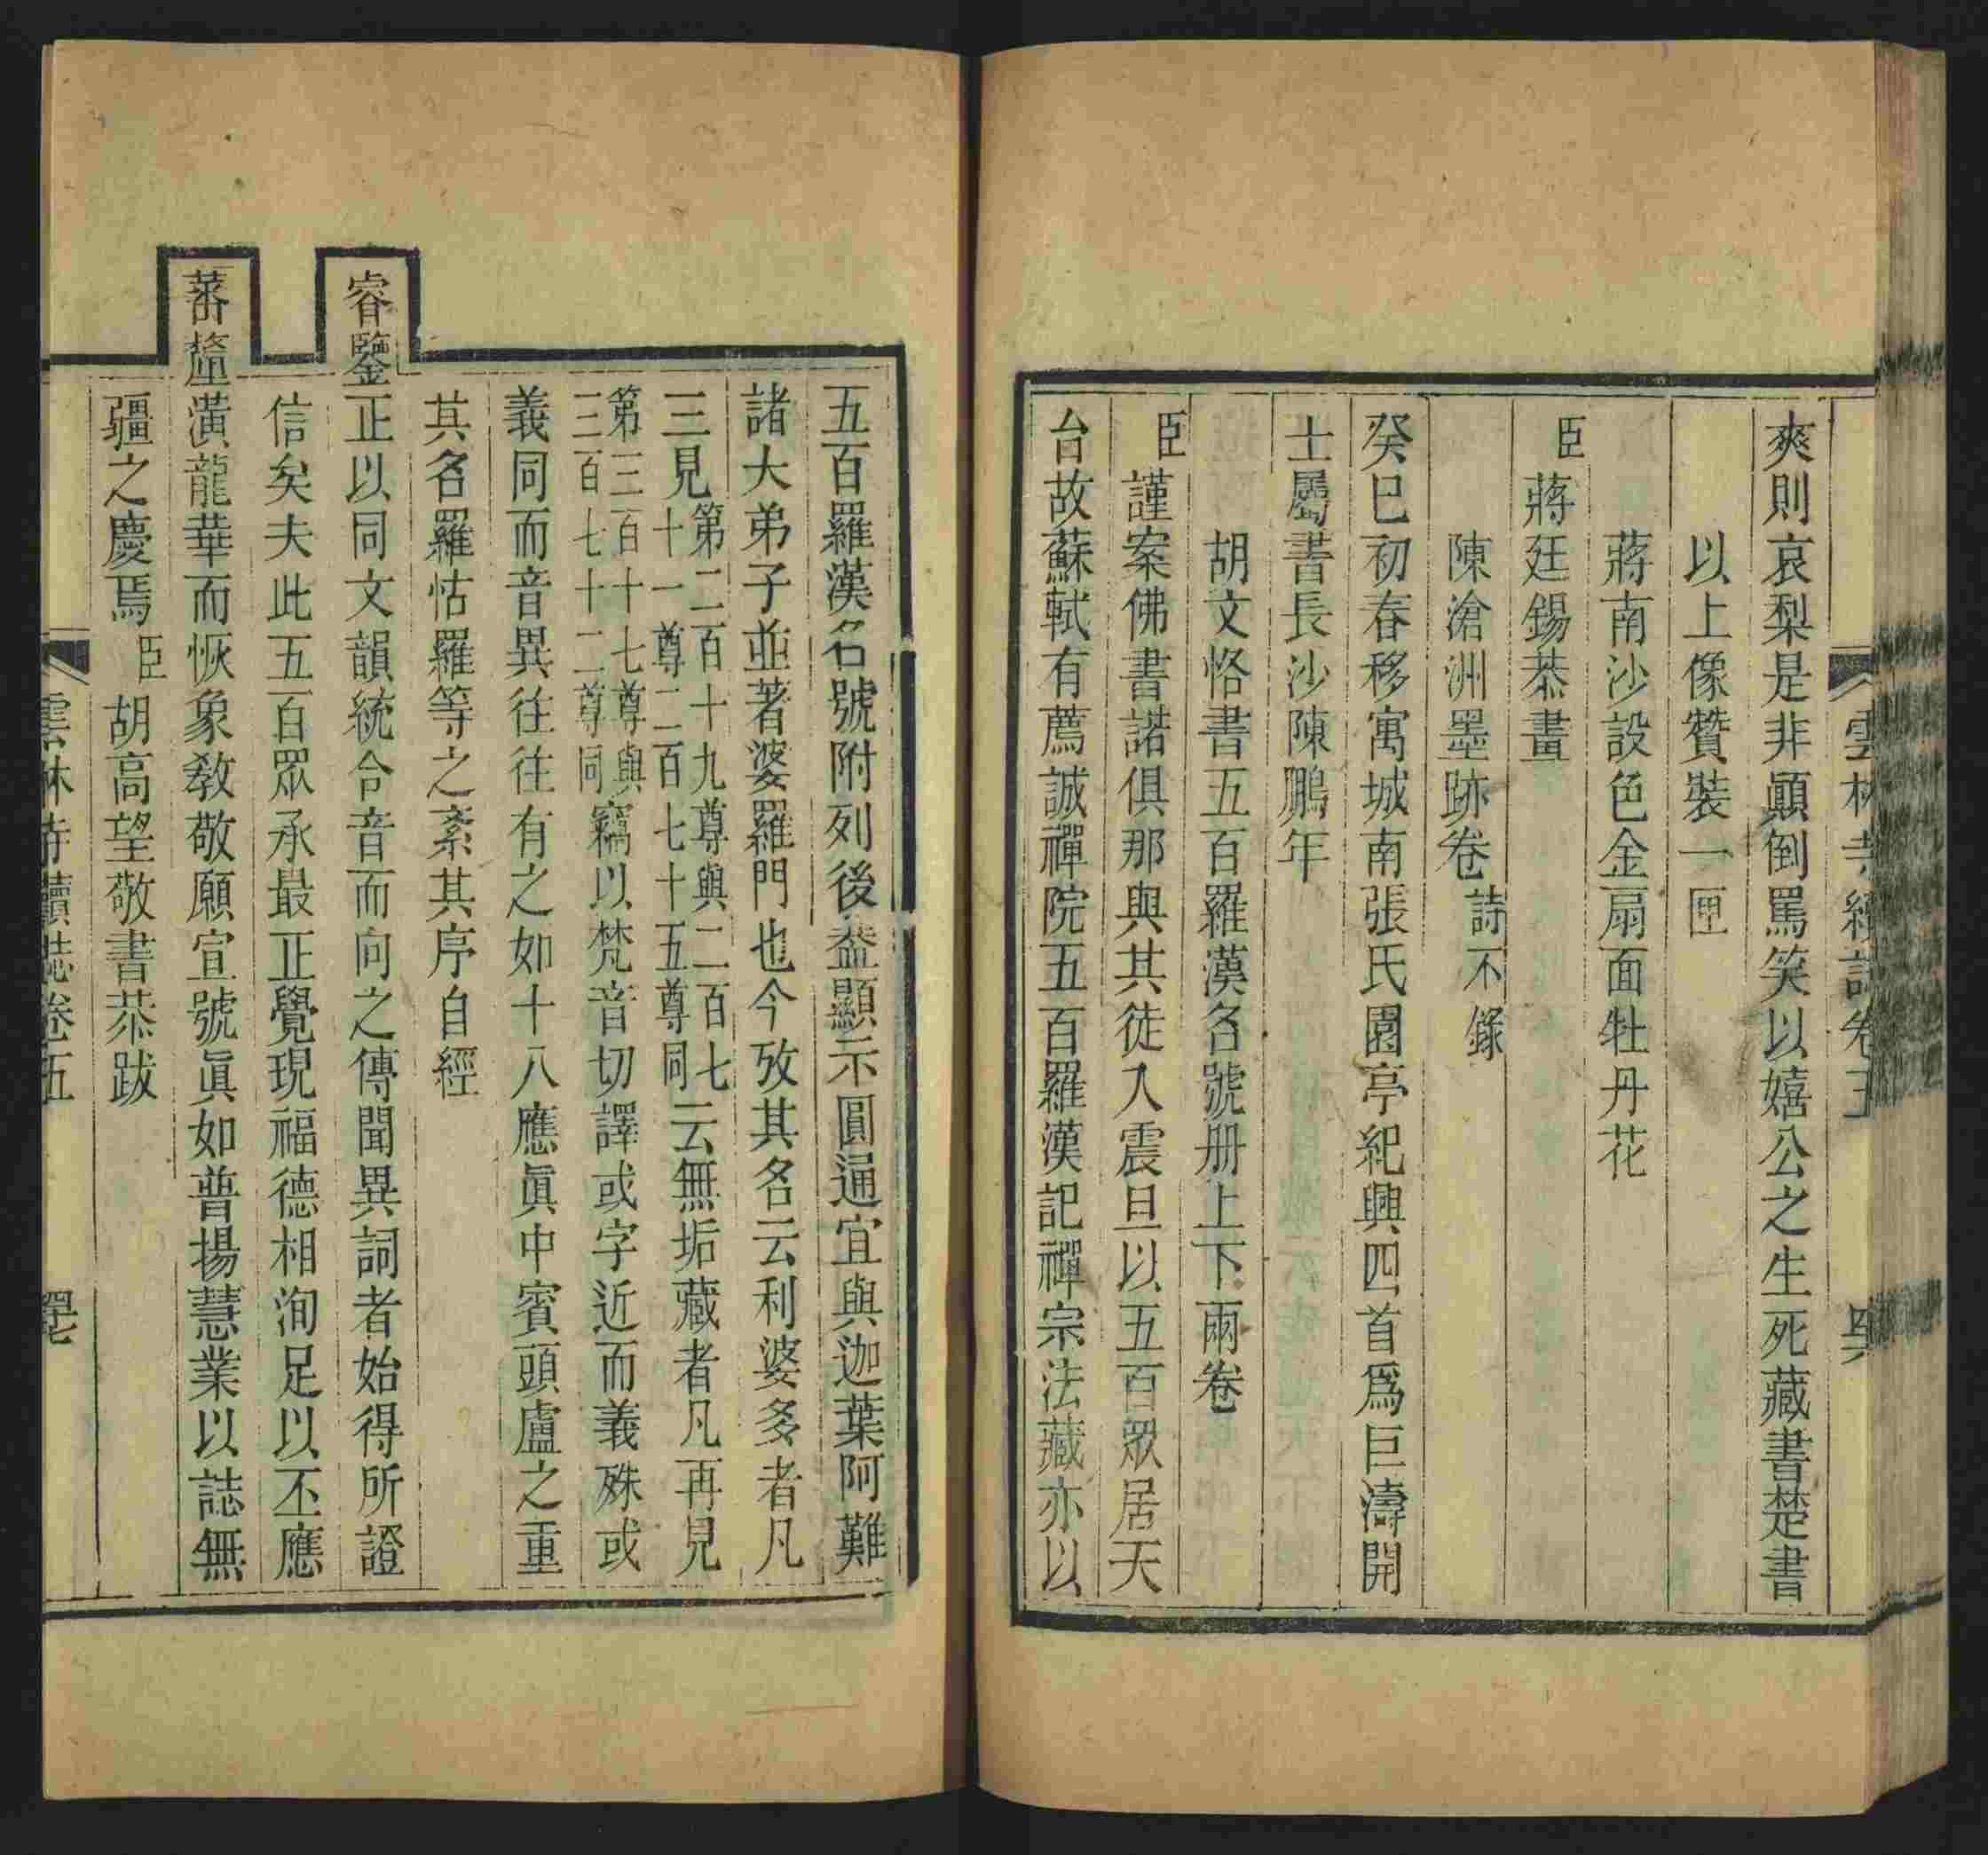 雲林寺續誌卷五
爽則哀梨是非顚倒罵笑以嬉公之生死藏書楚書
以上像贊裝一匣
蔣南沙設色金扇面牡丹花
臣蔣廷錫恭畫
陳滄洲墨跡卷詩不錄
癸巳初春移寓城南張氏園亭紀興四首爲巨濤開
士屬書長沙陳鵬年
胡文恪書五百羅漢名號册上下兩卷
臣謹案佛書諾俱那與其徒入震旦以五百眾居天
台故蘇軾有薦誠禪院五百羅漢記禪宗法藏亦以
五百羅漢名號附列後葢顯示圓通宜與迦葉阿難
諸大弟子並著婆羅門也今攷其名云利婆多者凡
三見第二百十九尊與二百七十一尊二百七十五尊同云無垢藏者凡再見
第三百十七尊與三百七十二尊同竊以梵音切譯或字近而義殊或
義同而音異往往有之如十八應眞中賓頭盧之重
其名羅怙羅等之紊其序自經
睿鑒正以同文韻統合音而向之傳聞異詞者始得所證
信矣夫此五百眾承最正覺現福德相洵足以丕應
蕃釐潢龍華而恢象敎敬願宣號眞如普揚慧業以誌無
疆之慶焉臣胡高望敬書恭跋
雲林寺續誌卷五